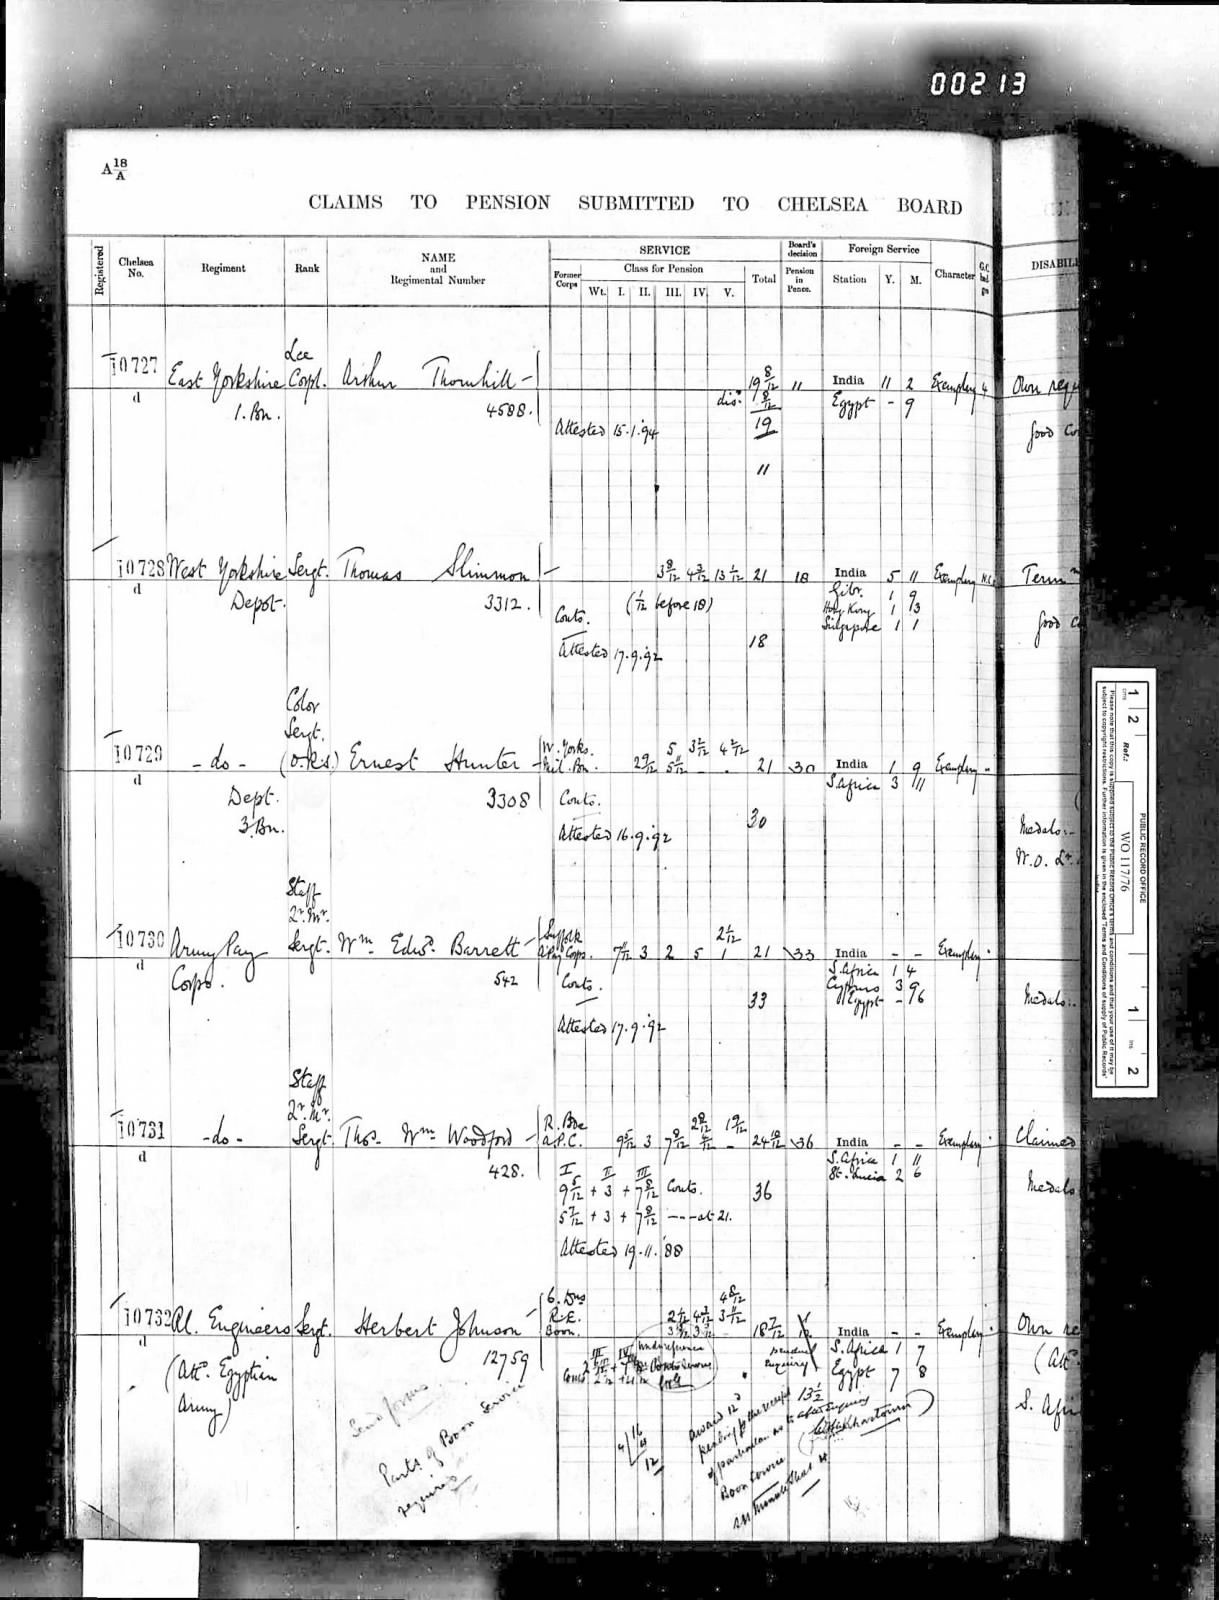 00213
A 18/A
CLAIMS TO PENSION SUBMITTED TO CHELSEA BOARD
Registered
Chelsea No.
Regiment
Rank
NAME and Regimental Number
SERVICE
Former Corps
Class for Pension
Wt. I. II. III. IV. V.
Total
Board's decision
Pension in Pence.
Foreign Service
Station Y. M.
Character
DISABIL
Lce
10727 East Yorkshire Corpl. Arthur Thornhill 19 8/12 11 India 11 2 Exemplary 4 Own requ
d 1. Bn. 4588. dis. 8/12 Egypt - 9
Attested 15.1.94 19 Good Co
11
10728 West Yorkshire Sergt. Thomas Slimmon - 3 8/12 4 3/12 13 1/12 21 18 India 5 11 Exemplary Term
d Depot. 3312. (1/12 before 18) Gibr. 1 9
Conts. Hong Kong 1 3
Singapore 1 1 Good C
Attested 17.9.92 18
Color
Sergt.
10729 - do - (O.R.S.) Ernest Hunter W. Yorks. Mil. Bn. 2 9/12 5 5 11/12 3 2/12 4 2/12 21 30 India 1 9 Exemplary -
d S. Africa 3 11
Dept. 3308 Conts.
3. Bn. Attested 16.9.92 30 Medals:-
W.O. Lr.
Staff
Qr. Mr.
10730 Army Pay Sergt. Wm. Edwd. Barrett Suffolk A. Pay Corps. 7 11/12 3 2 5 2 1/12 1 21 33 India - - Exemplary
d Corps. 542 Conts. S. Africa 1 4
Cyprus 3 9
33 Egypt - 6 Medals:-
Attested 17.9.92
Staff
Qr. Mr.
10731 -do- Sergt. Thos. Wm. Woodford R. Bde A.P.C. 9 5/12 3 7 8/12 2 8/12 1 9/12 24 10/12 36 India - - Exemplary Claimed
d 428. S. Africa 1 11
St. Lucia 2 6
I II III
9 5/12 + 3 + 7 8/12 Conts. 36 Medals
5 7/12 + 3 + 7 8/12 --- at 21.
Attested 19.11.88
10732 Rl. Engineers Sergt. Herbert Johnson 6. Dns R.E. Boon. 4 8/12 3 11/12 18 7/12 India - - Exemplary Own re
d 12759 S. Africa 1 7
(Att. Egyptian Egypt 7 8 (Att.
Army) S. Afri
Send forms
Parts of Boon Service
required
4/16
12
13 1/2
award 12d
pending the receipt
of particulars as to
Boon Service
Khartoum
1 2 cms
Ref.:
PUBLIC RECORD OFFICE
WO 117/76
1 ins 2
Please note that this copy is supplied subject to the Public Record Office's terms and conditions and that your use of it may be subject to copyright restrictions. Further information is given in the enclosed 'Terms and Conditions of supply of Public Records'